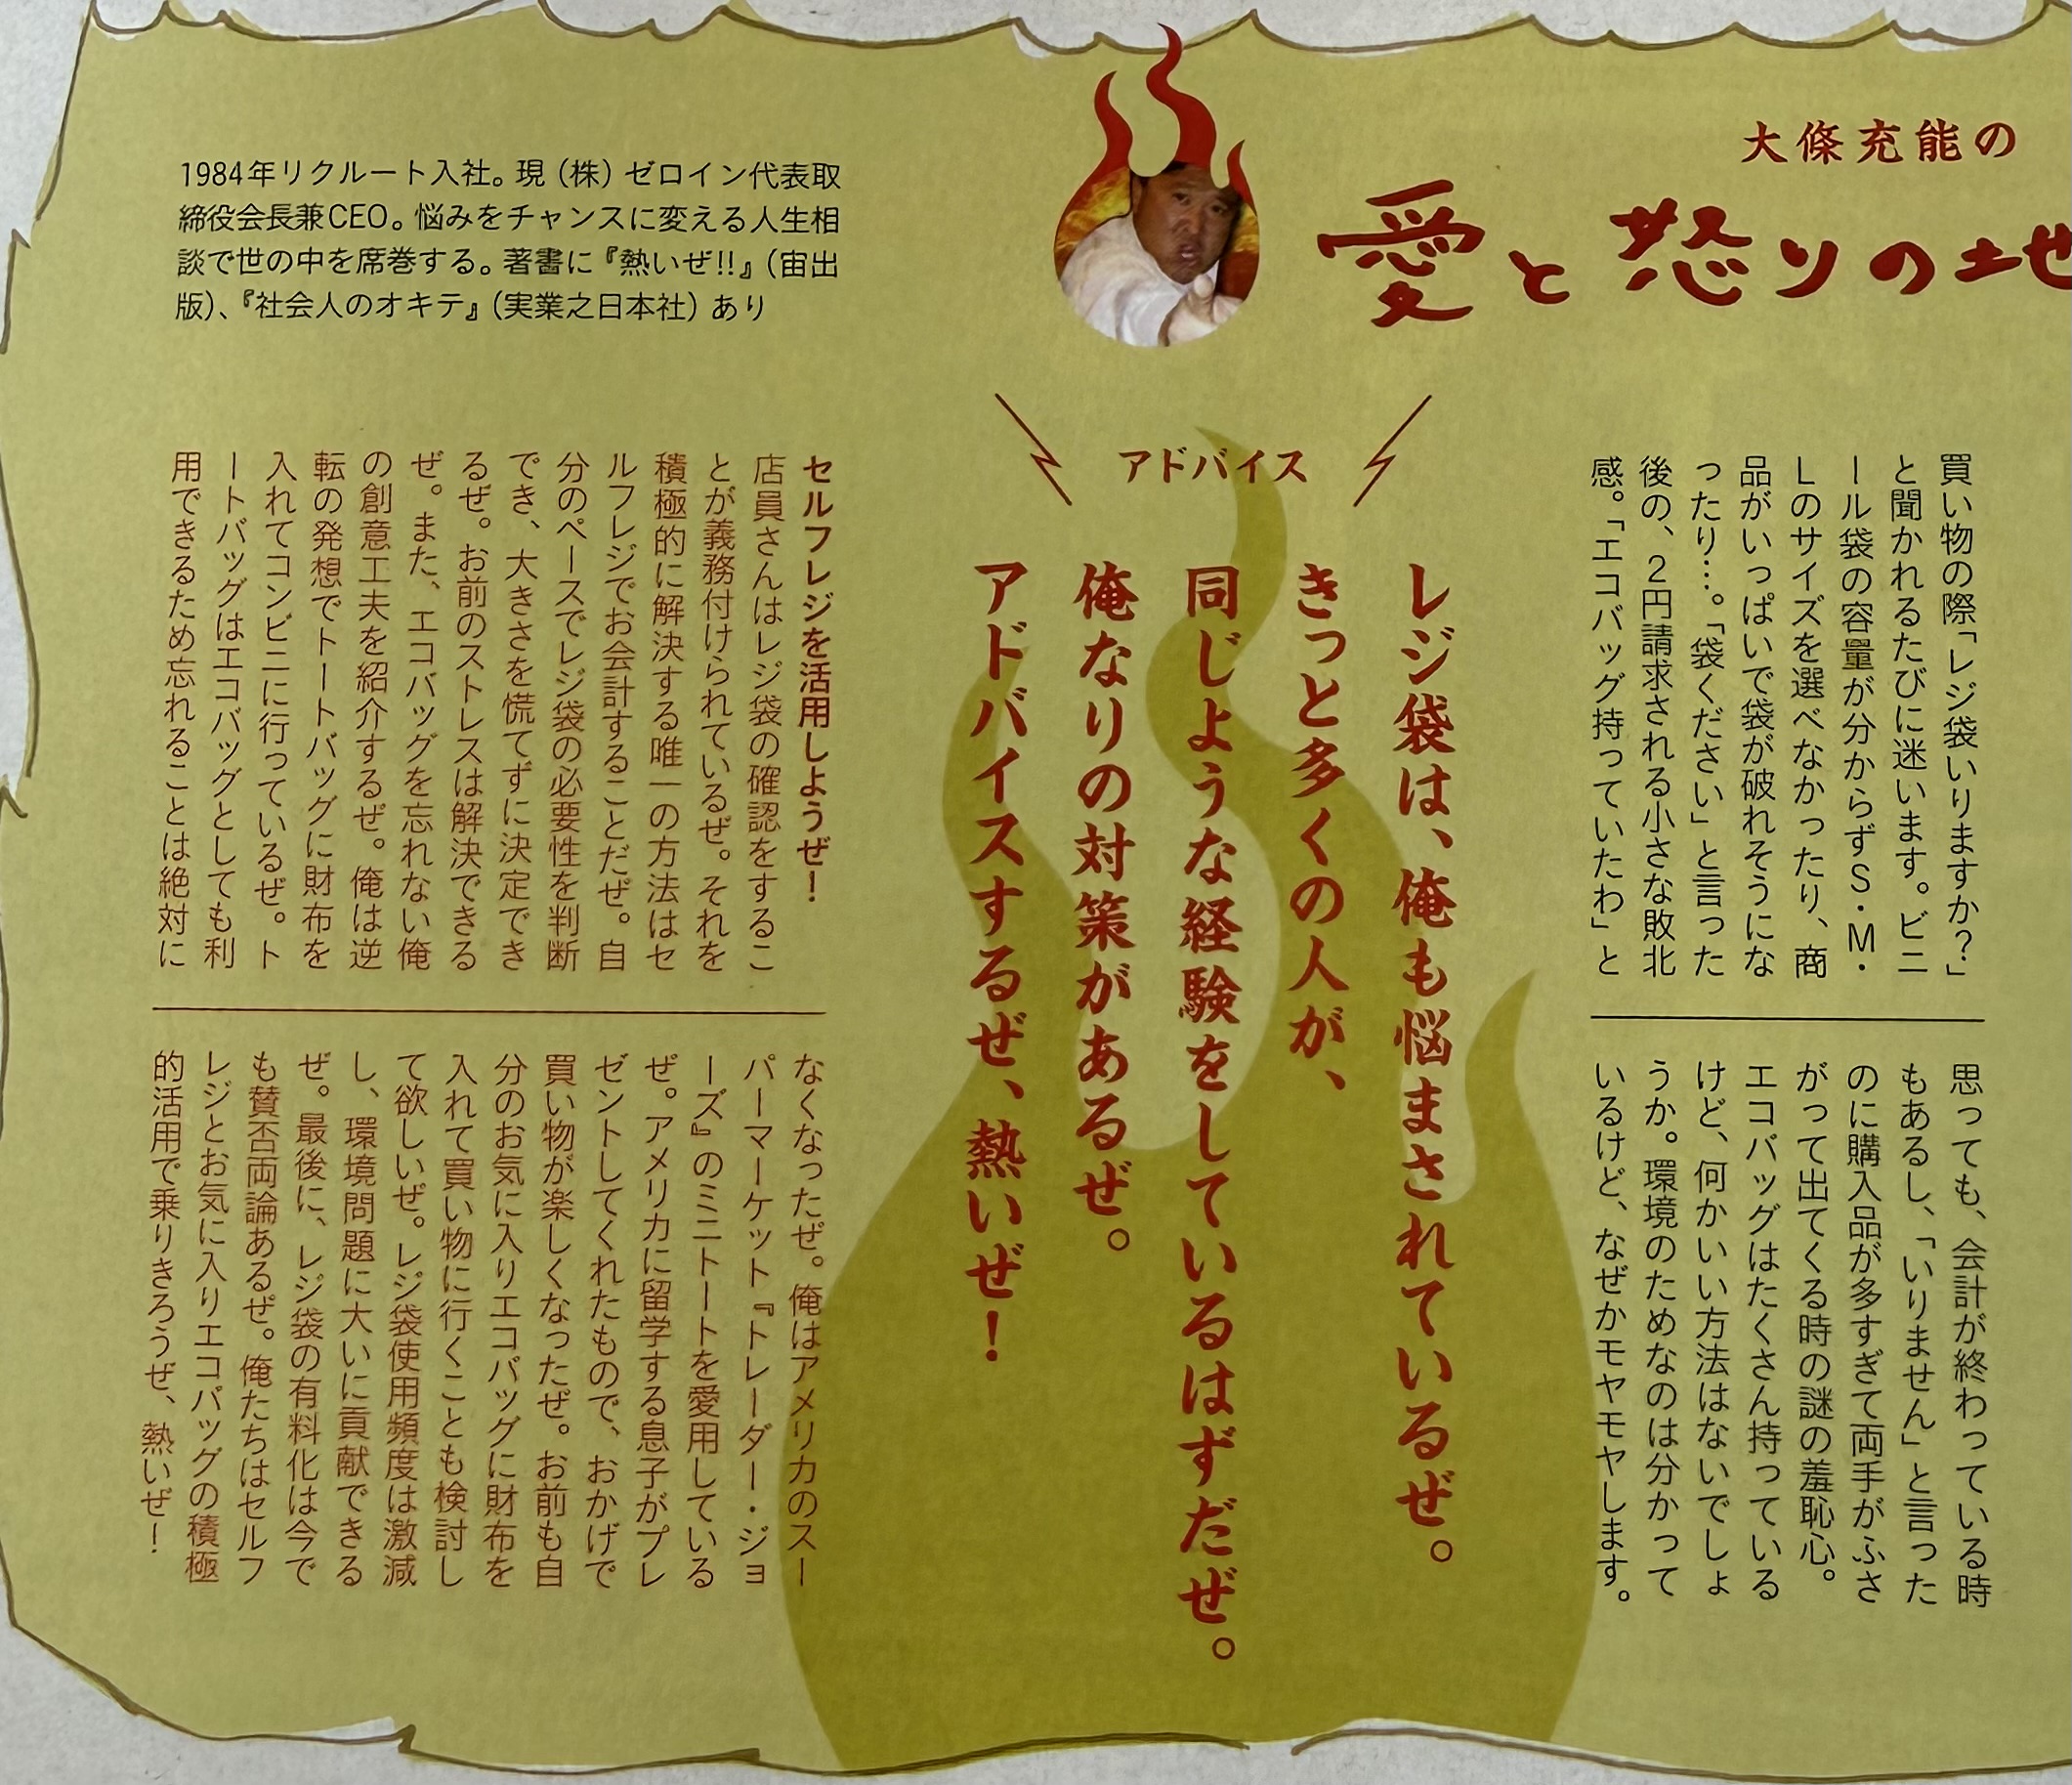 大條充能の
愛と怒りの地
1984年リクルート入社。現（株）ゼロイン代表取
締役会長兼CEO。悩みをチャンスに変える人生相
談で世の中を席巻する。著書に『熱いぜ!!』（宙出
版）、『社会人のオキテ』（実業之日本社）あり
買い物の際「レジ袋いりますか？」
と聞かれるたびに迷います。ビニ
ール袋の容量が分からずS・M・
Lのサイズを選べなかったり、商
品がいっぱいで袋が破れそうにな
ったり…。「袋ください」と言った
後の、2円請求される小さな敗北
感。「エコバッグ持っていたわ」と
思っても、会計が終わっている時
もあるし、「いりません」と言った
のに購入品が多すぎて両手がふさ
がって出てくる時の謎の羞恥心。
エコバッグはたくさん持っている
けど、何かいい方法はないでしょ
うか。環境のためなのは分かって
いるけど、なぜかモヤモヤします。
アドバイス
レジ袋は、俺も悩まされているぜ。
きっと多くの人が、
同じような経験をしているはずだぜ。
俺なりの対策があるぜ。
アドバイスするぜ、熱いぜ！
セルフレジを活用しようぜ！
店員さんはレジ袋の確認をするこ
とが義務付けられているぜ。それを
積極的に解決する唯一の方法はセ
ルフレジでお会計することだぜ。自
分のペースでレジ袋の必要性を判断
でき、大きさを慌てずに決定でき
るぜ。お前のストレスは解決できる
ぜ。また、エコバッグを忘れない俺
の創意工夫を紹介するぜ。俺は逆
転の発想でトートバッグに財布を
入れてコンビニに行っているぜ。ト
ートバッグはエコバッグとしても利
用できるため忘れることは絶対に
なくなったぜ。俺はアメリカのスー
パーマーケット『トレーダー・ジョ
ーズ』のミニトートを愛用している
ぜ。アメリカに留学する息子がプレ
ゼントしてくれたもので、おかげで
買い物が楽しくなったぜ。お前も自
分のお気に入りエコバッグに財布を
入れて買い物に行くことも検討し
て欲しいぜ。レジ袋使用頻度は激減
し、環境問題に大いに貢献できる
ぜ。最後に、レジ袋の有料化は今で
も賛否両論あるぜ。俺たちはセルフ
レジとお気に入りエコバッグの積極
的活用で乗りきろうぜ、熱いぜ！